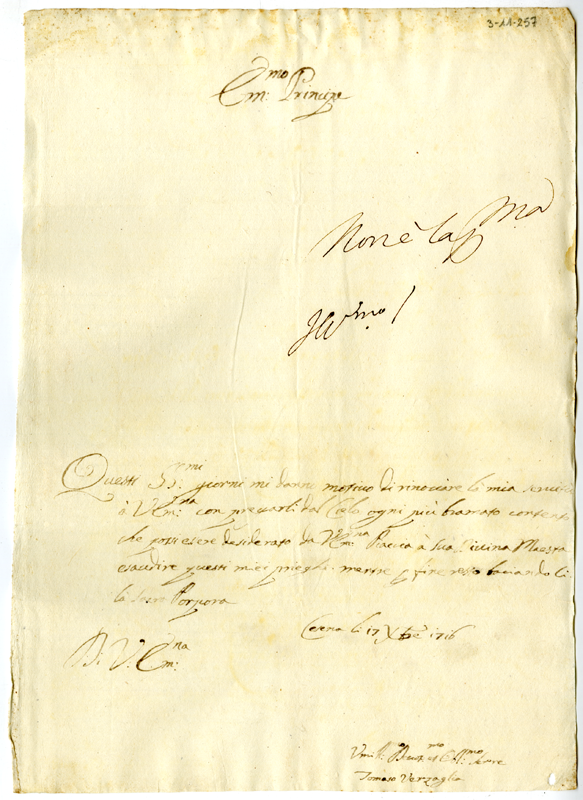 3-11-257
Em:mo Principe
Non è la p.ma
Questi SS:mi giorni mi danno motivo di rinovare la mia servitù
à V Em:za con pregarli dal Cielo ogni più bramato contento
che possi esere desiderato da V Em:na Piaccia à Sua Divina Maestà
esaudire questi miei prieghi mentre p fine resto baciando li
la Sacra Porpora
Cesena li 17 Xbre 1716
Di V. Em:na
Tomaso Verzaglia